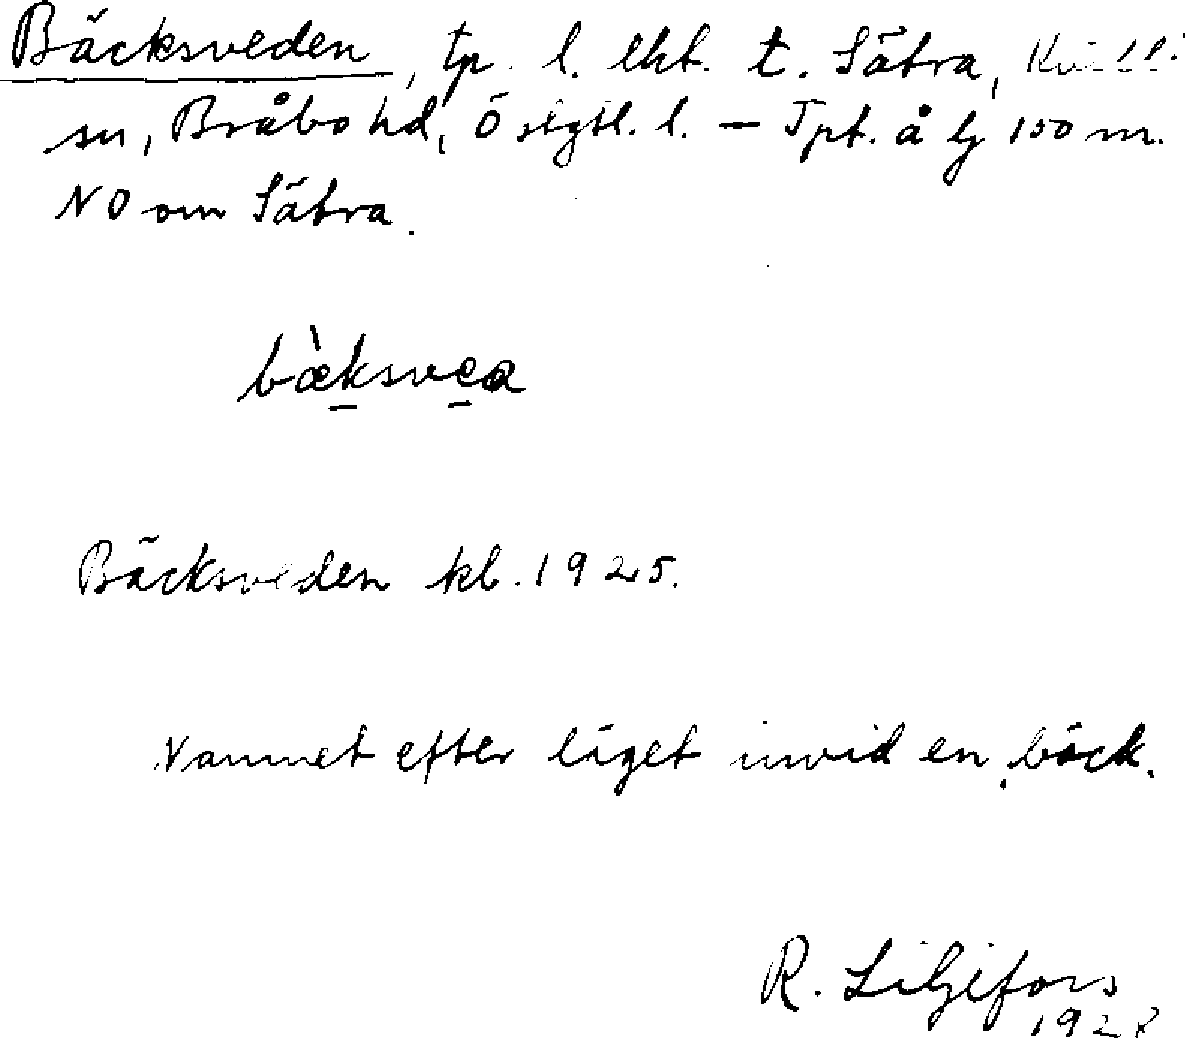 Bäcksveden, tp. l. lht. t. Säbra, Kvilli
sn, Bråbo hd, Östgtl. l. – Tpt. å lj 150 m.
NO om Säbra.
bæ̀ksvea
Bäcksveden kb. 1925.
Namnet efter läget invid en bäck.
R. Liljefors
1928